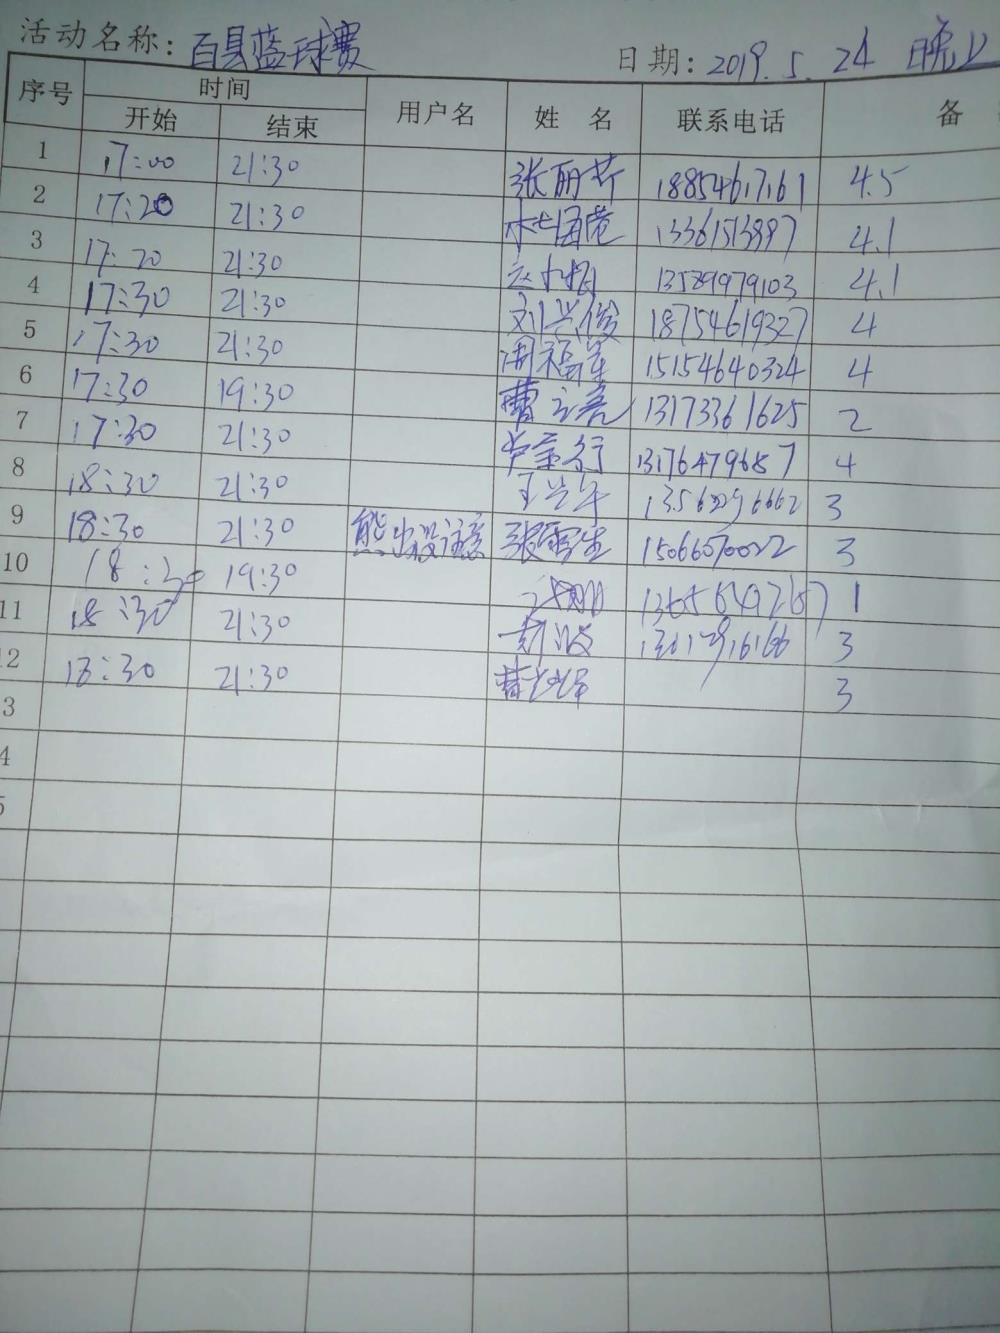 活动名称：百县蓝球赛 日期：2019.5.24 晚上
序号 时间 用户名 姓 名 联系电话 备
开始 结束
1 17:00 21:30 张丽芹 18854617161 4.5
2 17:20 21:30 13361513997 4.1
3 17:20 21:30 13589979103 4.1
4 17:30 21:30 刘兴俊 18754619327 4
5 17:30 21:30 周福军 15154640324 4
6 17:30 19:30 曹立亮 13173361625 2
7 17:30 21:30 13176479687 4
8 18:30 21:30 3
9 18:30 21:30 熊出没注意 张雪生 15066070022 3
10 18:30 19:30 1
11 18:30 21:30 3
12 18:30 21:30 3
3
4
5